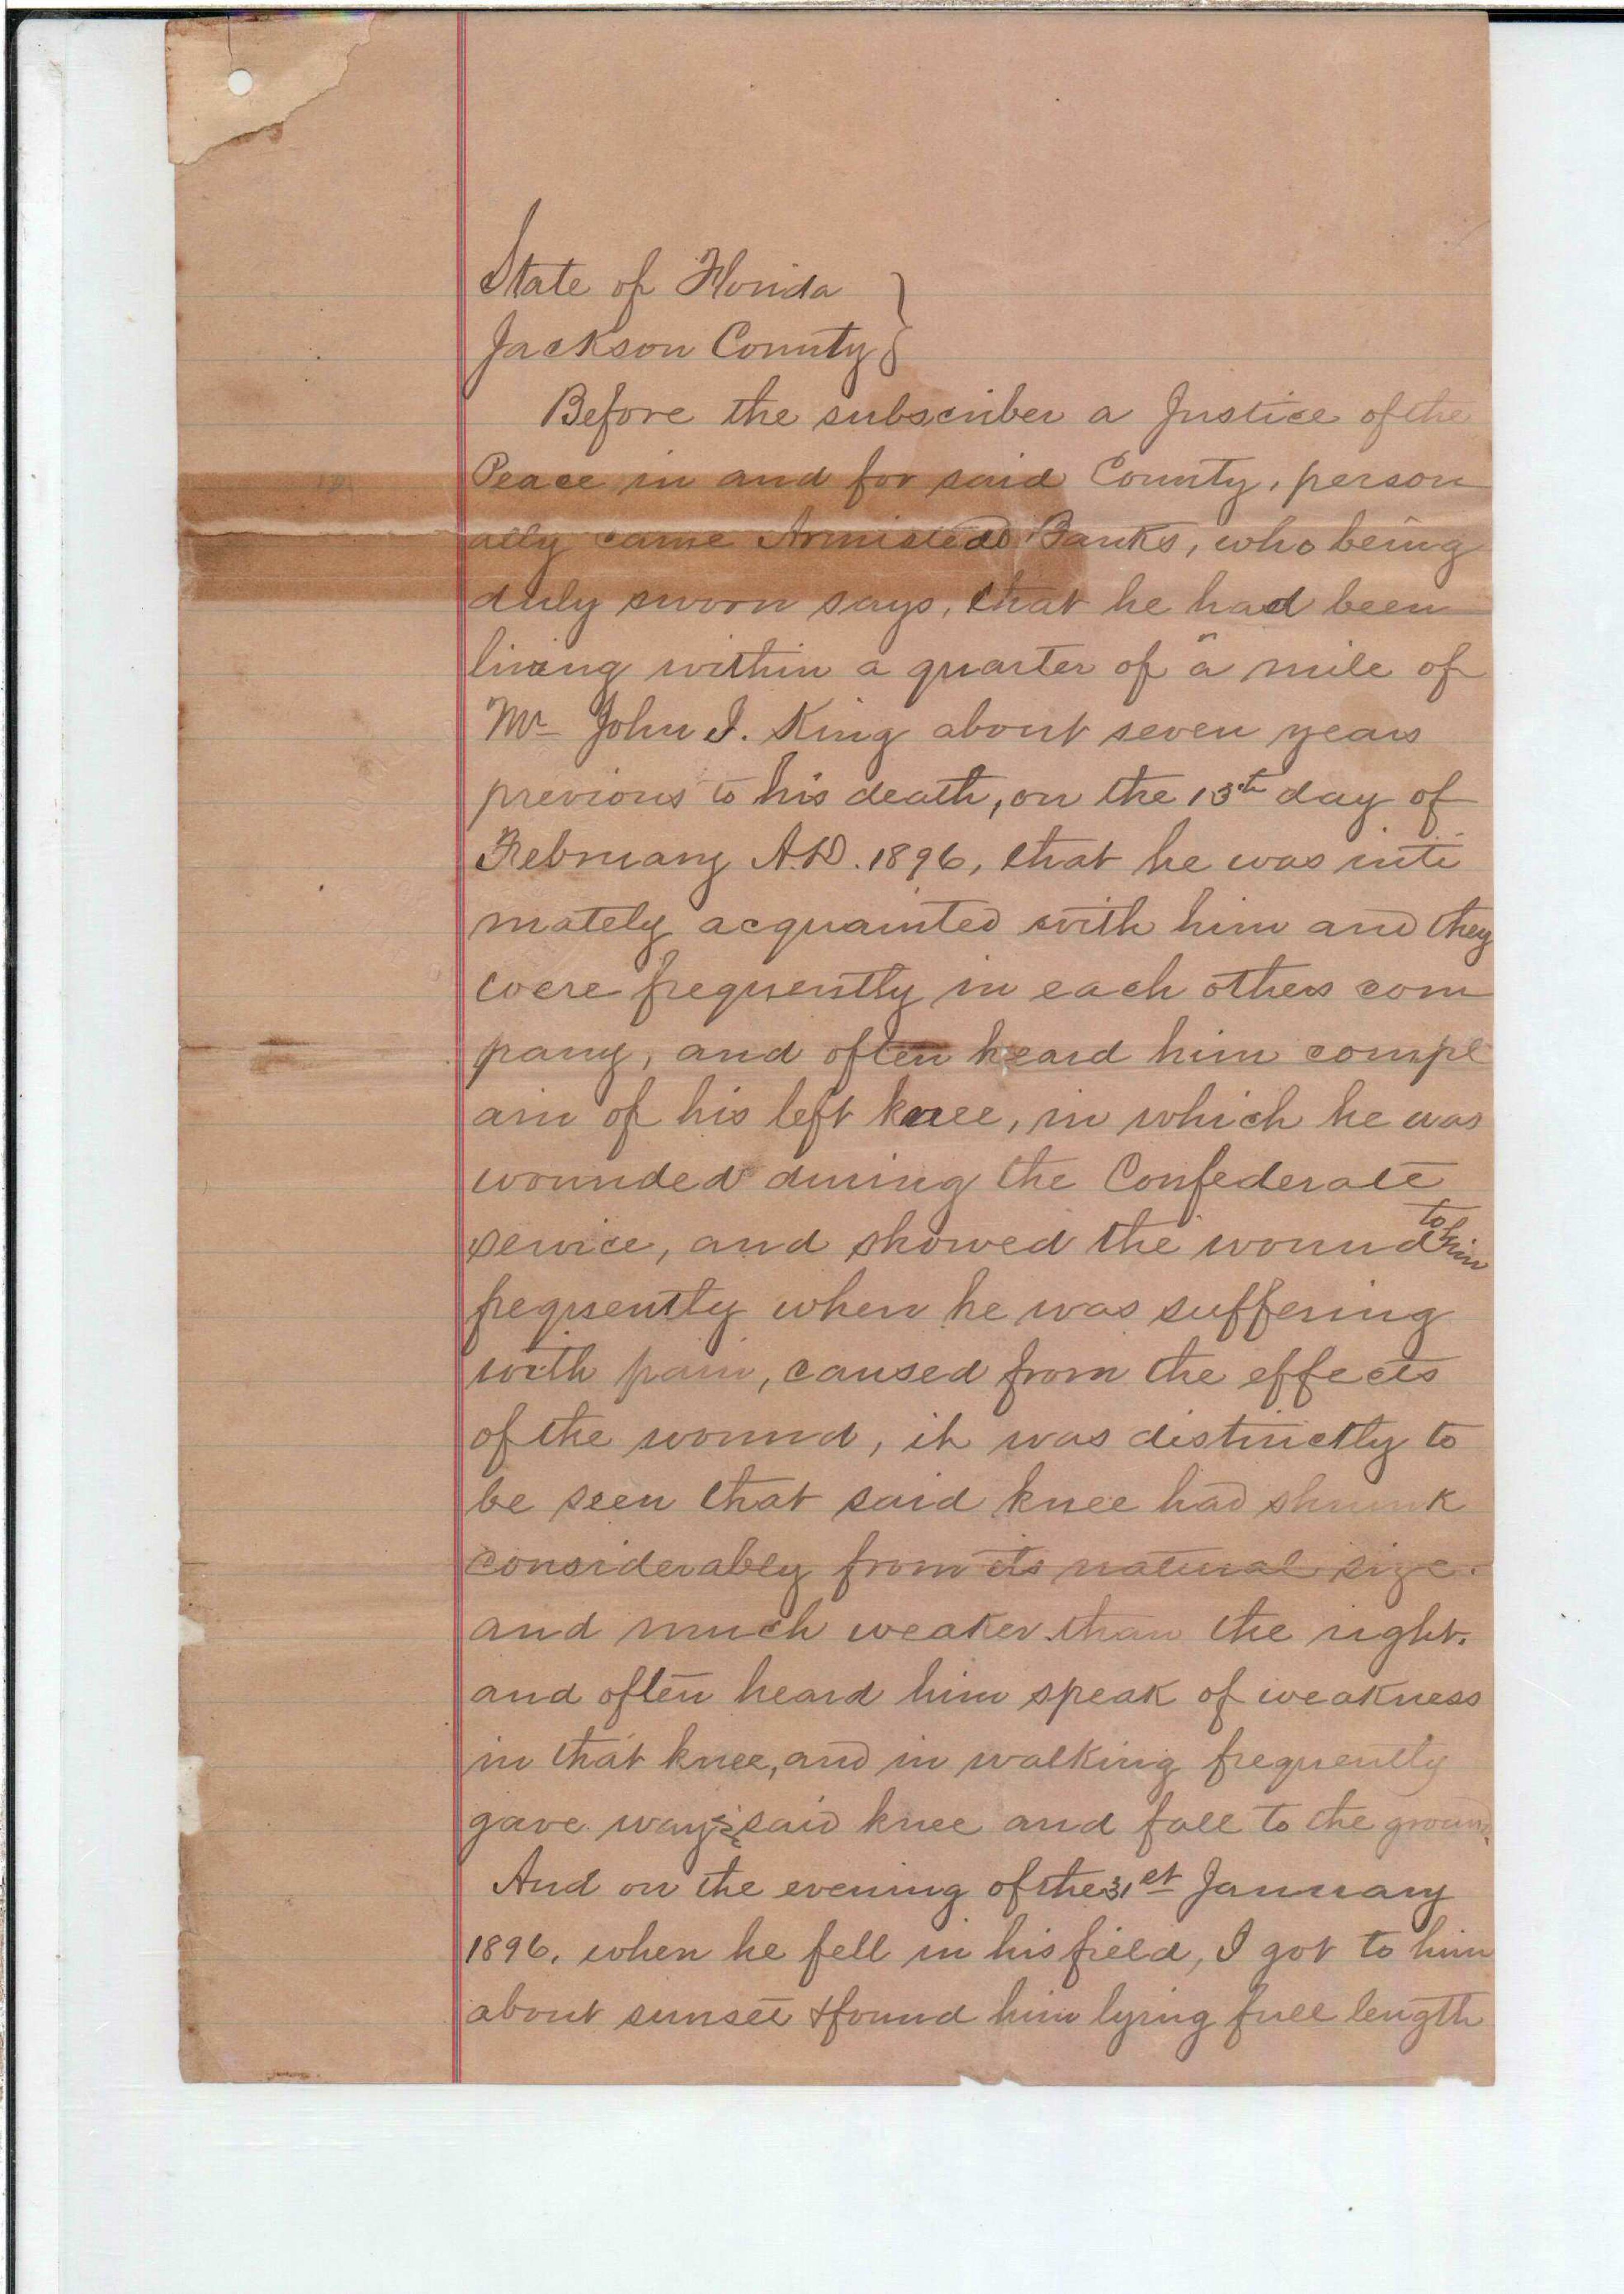 State of Florida }
Jackson County }
Before the subscriber a Justice of the
Peace in and for said County, person
ally came Armistead Banks, who being
duly sworn says, that he had been
living within a quarter of a mile of
Mr John I. King about seven years
previous to his death, on the 13th day of
February A.D. 1896, that he was inti
mately acquainted with him and they
were frequently in each others com
pany, and often heard him compl
ain of his left knee, in which he was
wounded during the Confederate
service, and showed the wound to him
frequently when he was suffering
with pain, caused from the effects
of the wound, it was distinctly to
be seen that said knee had shrunk
considerably from its natural size.
and much weaker than the right.
and often heard him speak of weakness
in that knee, and in walking frequently
gave way said knee and fall to the ground.
And on the evening of the 31st January
1896, when he fell in his field, I got to him
about sunset & found him lying full length